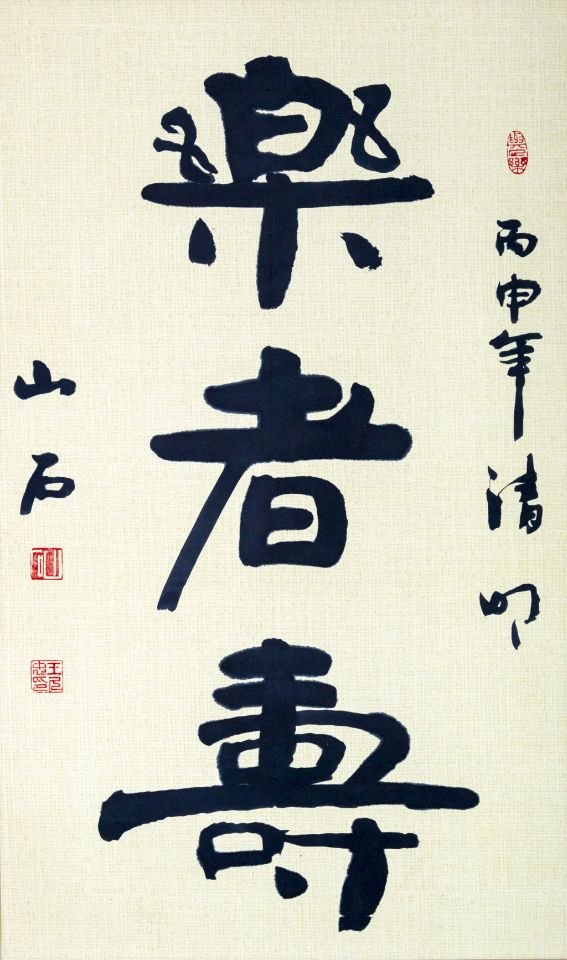 丙申年清明
樂者壽
山石